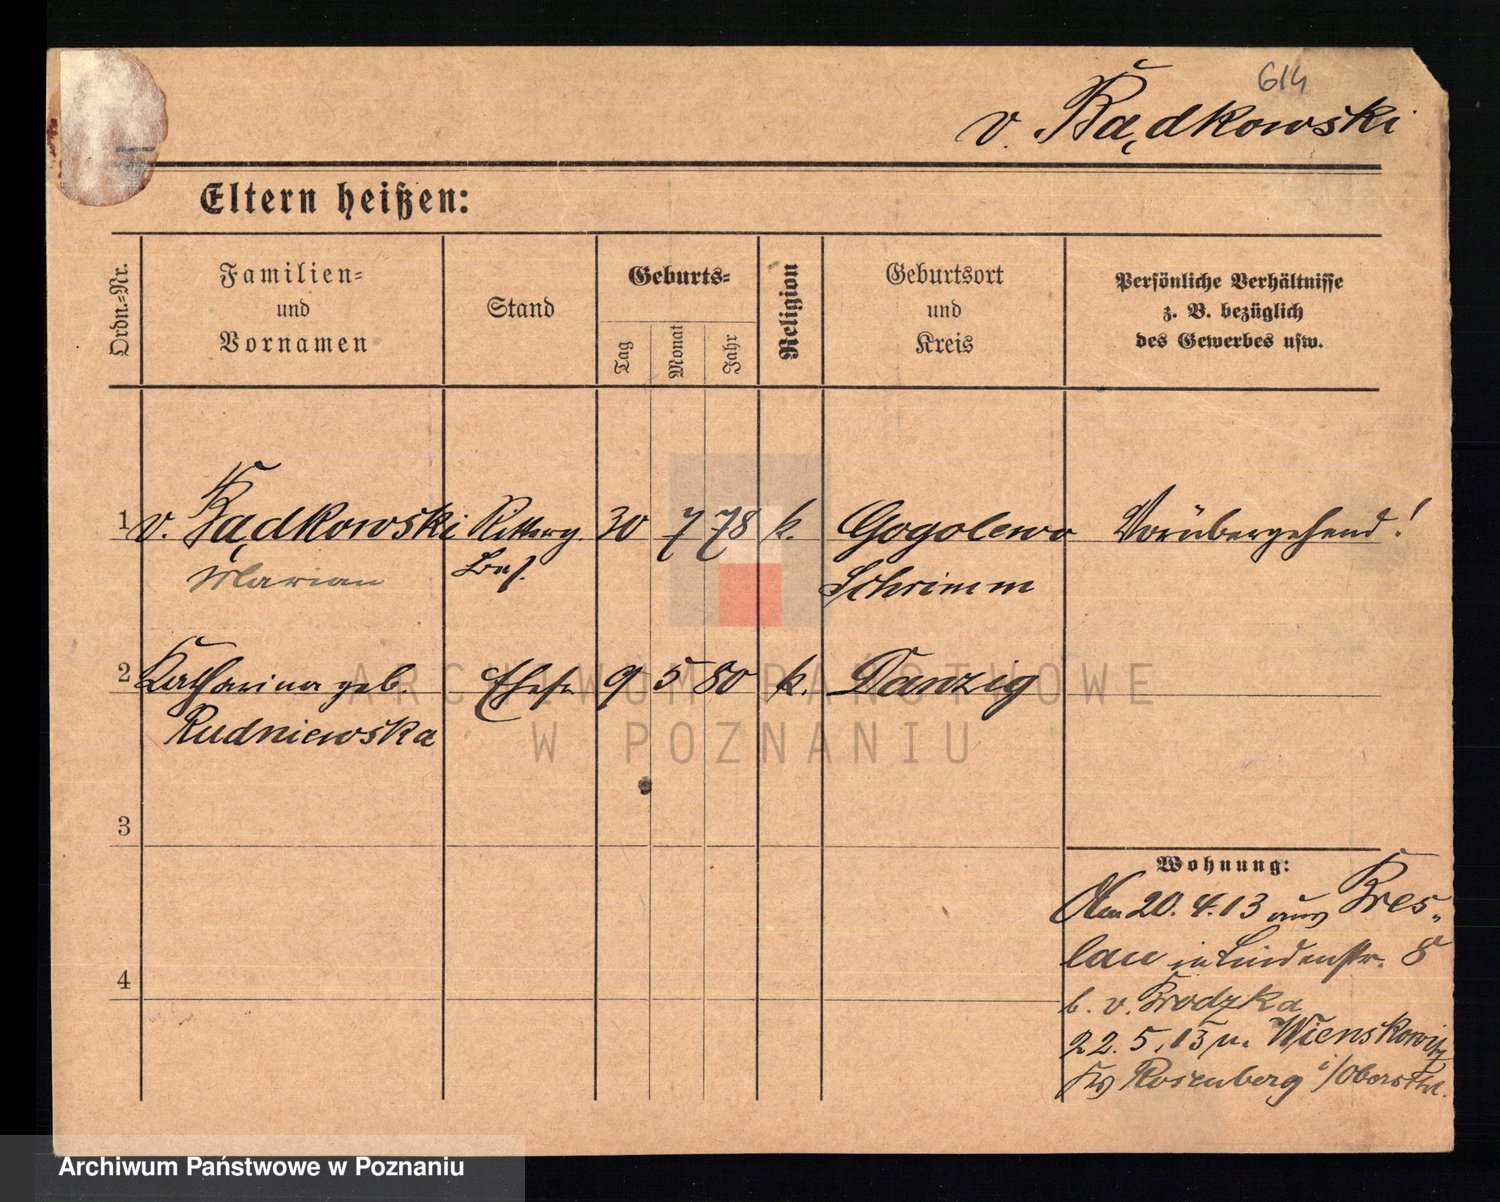 614
v. Bądkowski
Eltern heißen:
Ordn.=Nr.
Familien=
und
Vornamen
Stand
Geburts=
Tag
Monat
Jahr
Religion
Geburtsort
und
Kreis
Persönliche Verhältnisse
z. B. bezüglich
des Gewerbes usw.
1 v. Bądkowski Ritterg 30 7 78 k. Gogolewo Vorübergehend!
Marian Bes. Schrimm
2 Katharina geb. Ehefr 9 5 80 k. Danzig
Rudniewska
3
4
Wohnung:
Am 20. 4. 13 aus Bres-
lau in Lindenstr. 8
b. v. Brodzka
22. 5. 13 n. Wienskowitz
Krs Rosenberg i/Oberschl.
ARCHIWUM PAŃSTWOWE
W POZNANIU
Archiwum Państwowe w Poznaniu